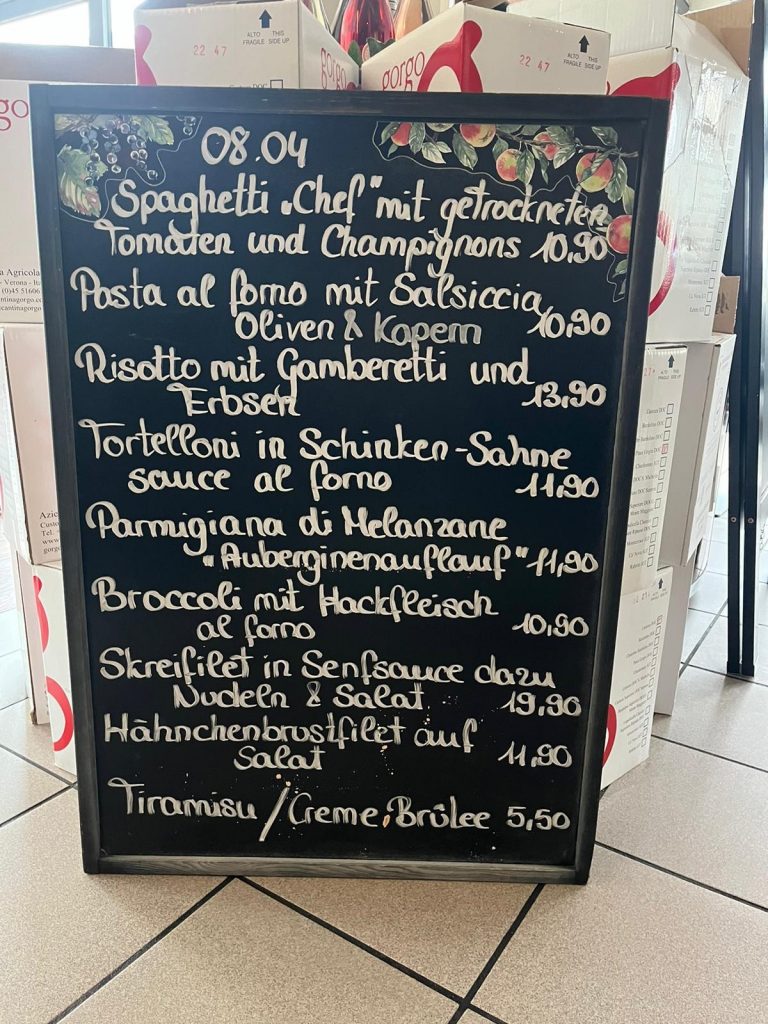 22 47
ALTO THIS
FRAGILE SIDE UP
gorgo
gorgo
22 47
ALTO THIS
FRAGILE SIDE UP
08.04
Spaghetti „Chef" mit getrockneten
Tomaten und Champignons 10,90
Pasta al forno mit Salsiccia
Oliven & Kapern 10,90
Risotto mit Gamberetti und
Erbsen 13,90
Tortelloni in Schinken-Sahne
sauce al forno 11,90
Parmigiana di Melanzane
"Auberginenauflauf" 11,90
Broccoli mit Hackfleisch
al forno 10,90
Skreifilet in Senfsauce dazu
Nudeln & Salat 19,90
Hähnchenbrustfilet auf
Salat 11,90
Tiramisu / Creme Brûlee 5,50